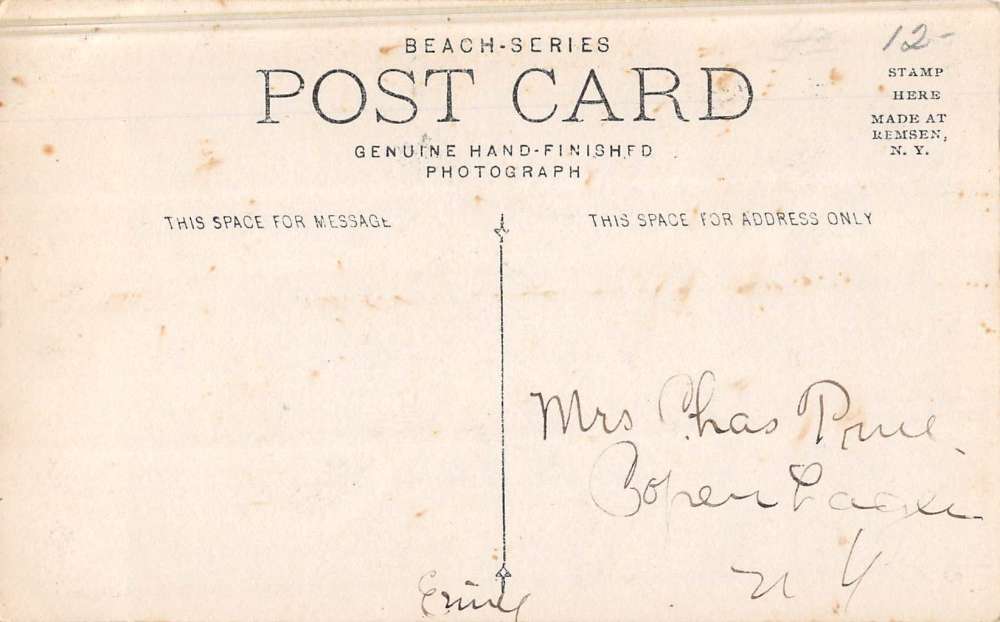 BEACH-SERIES
POST CARD
GENUINE HAND-FINISHED
PHOTOGRAPH
12-
STAMP
HERE
MADE AT
REMSEN,
N. Y.
THIS SPACE FOR MESSAGE
THIS SPACE FOR ADDRESS ONLY
Mrs Chas
Copenhagen
N Y